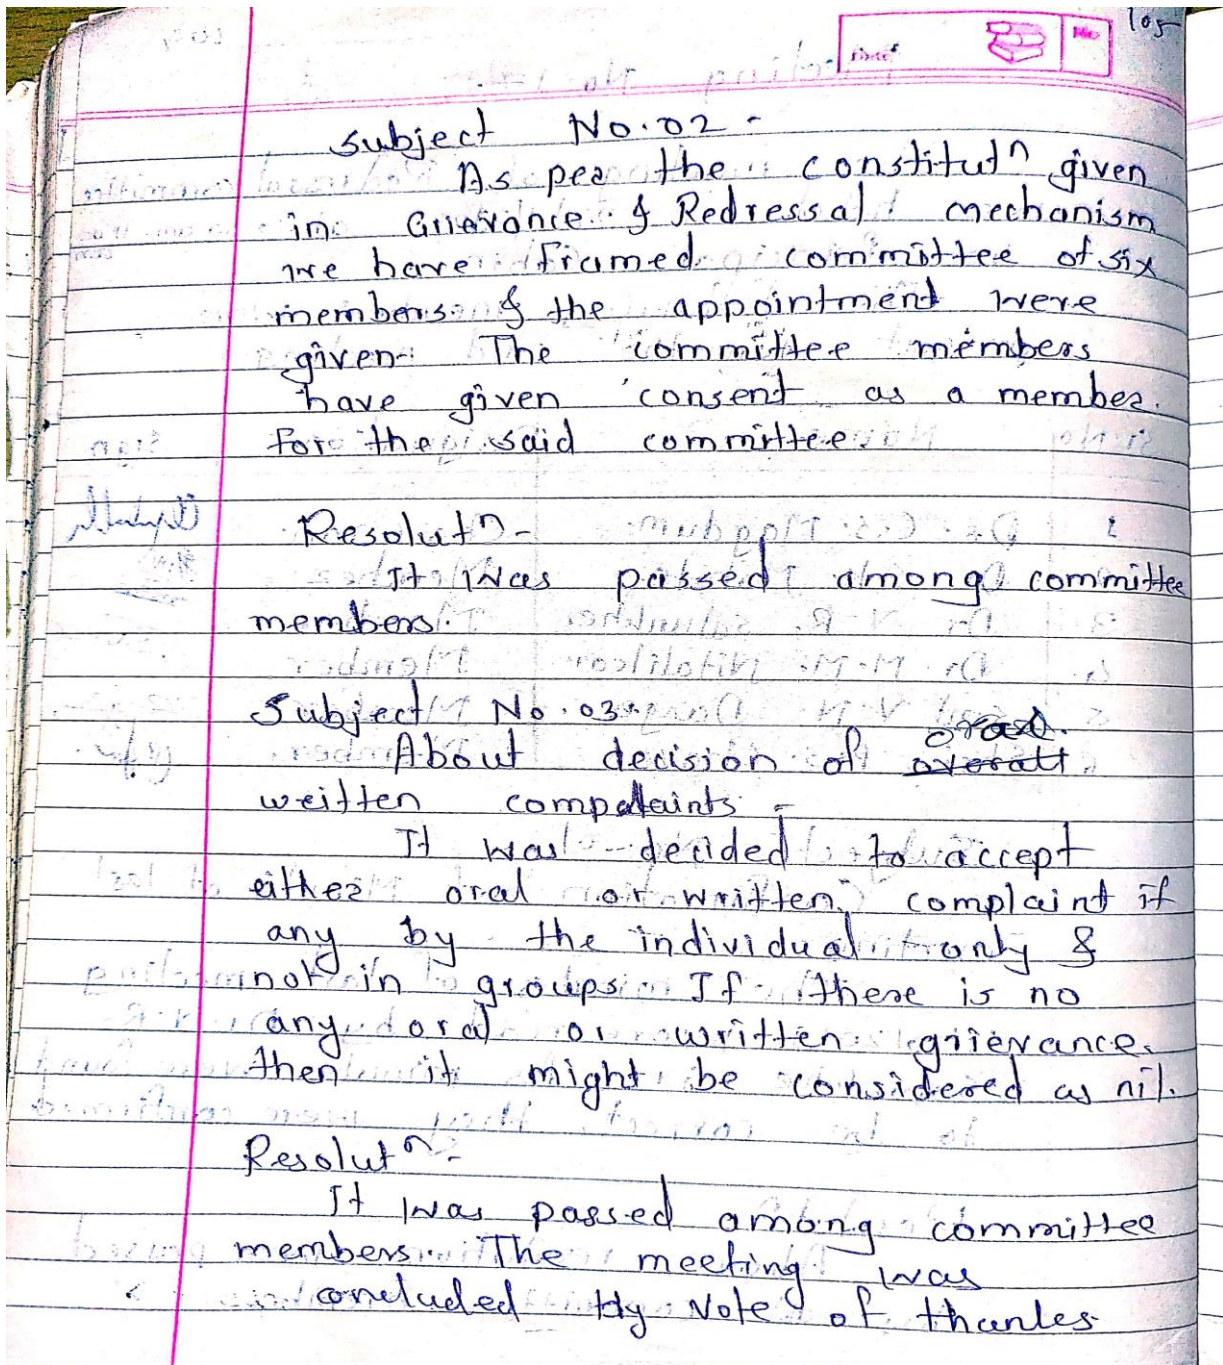 105
Date
No
Subject No.02 -
As per the constitutn given
in Grievance & Redressal mechanism
we have framed committee of six
members & the appointment were
given. The committee members
have given consent as a member
for the said committee.
Resolutn -
It was passed among committee
members.
Subject No.03
oral.
About decision of overall
written complaints -
It was decided to accept
either oral or written, complaint if
any by the individual only &
not in groups. If there is no
any oral or written grievance.
then it might be considered as nil.
Resolutn -
It was passed among committee
members. The meeting was
concluded by Note of thanks